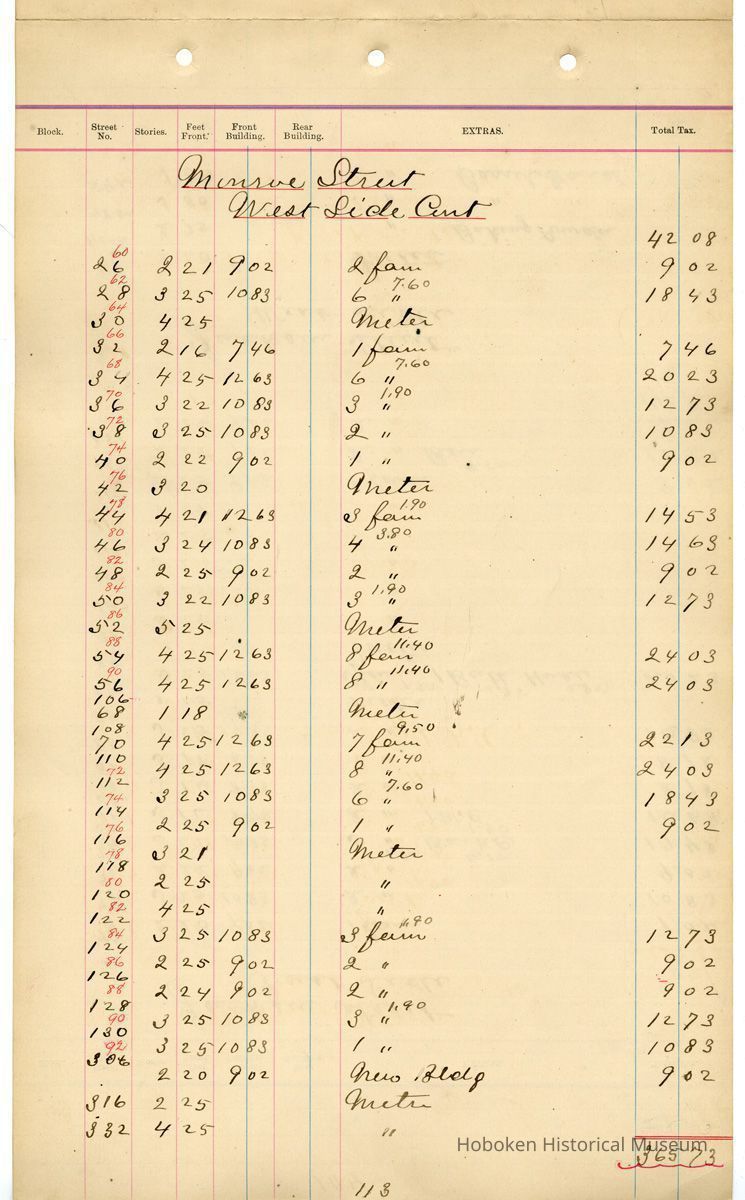 Block. Street No. Stories. Feet Front. Front Building. Rear Building. EXTRAS. Total Tax.
Monroe Street
West Side Cont
42 08
60
26 2 21 9 02 2 fam 9 02
62 7.60
28 3 25 10 83 6 " 18 43
64
30 4 25 Meter
66
32 2 16 7 46 1 fam 7 46
68 7.60
34 4 25 12 63 6 " 20 23
70 1.90
36 3 22 10 83 3 " 12 73
72
38 3 25 10 83 2 " 10 83
74
40 2 22 9 02 1 " 9 02
76
42 3 20 Meter
78 1.90
44 4 21 12 63 3 fam 14 53
80 3.80
46 3 24 10 83 4 " 14 63
82
48 2 25 9 02 2 " 9 02
84 1.90
50 3 22 10 83 3 " 12 73
86
52 5 25 Meter
88 11.40
54 4 25 12 63 8 fam 24 03
90 11.40
56 4 25 12 63 8 " 24 03
106
68 1 18 Meter
108 9.50
70 4 25 12 63 7 fam 22 13
110 11.40
72 4 25 12 63 8 " 24 03
112 7.60
74 3 25 10 83 6 " 18 43
114
76 2 25 9 02 1 " 9 02
116
78 3 21 Meter
118
80 2 25 "
120
82 4 25 "
122 1.90
84 3 25 10 83 3 fam 12 73
124
86 2 25 9 02 2 " 9 02
126
88 2 24 9 02 2 " 9 02
128 1.90
90 3 25 10 83 3 " 12 73
130
92 3 25 10 83 1 " 10 83
306 2 20 9 02 New Bldg 9 02
316 2 25 Metre
332 4 25 "
Hoboken Historical Museum
365 73
113